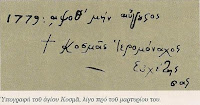 1779: αψοθ' μὴν αὔγουστος
† Κοσμᾶς Ἱερομόναχος
Εὐχέτης
σας
Ὑπογραφὴ τοῦ ἁγίου Κοσμᾶ, λίγο πρὸ τοῦ μαρτυρίου του.